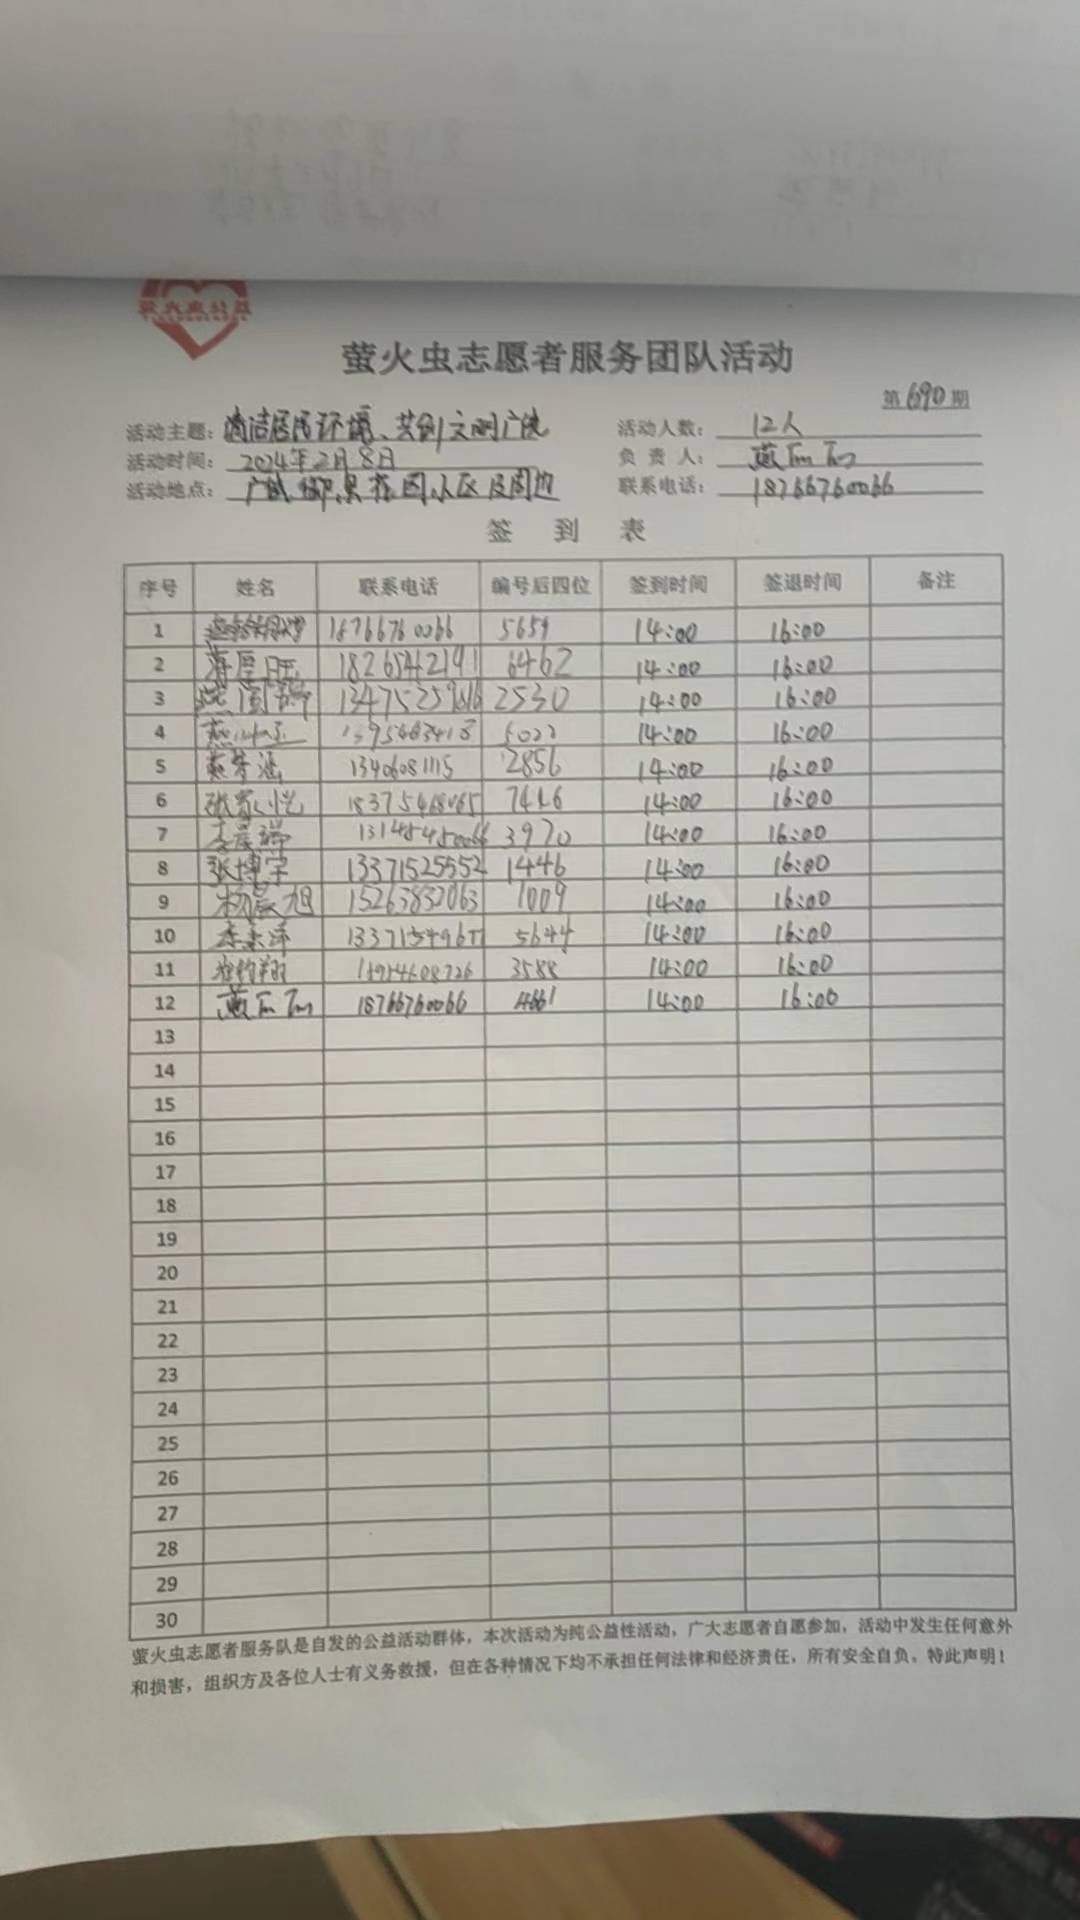 萤火虫公益
萤火虫志愿者服务团队活动
第690期
活动主题：清洁居住环境、共创文明广饶 活动人数：12人
活动时间：2024年2月8日 负责人：燕
活动地点：广饶 花园小区及周边 联系电话：18766760066
签到表
序号 姓名 联系电话 编号后四位 签到时间 签退时间 备注
1 18766760066 5659 14:00 16:00
2 厚旺 18265462191 6462 14:00 16:00
3 2530 14:00 16:00
4 14:00 16:00
5 1340681115 2856 14:00 16:00
6 张家悦 14:00 16:00
7 李晨 3970 14:00 16:00
8 张博宇 13371525552 1446 14:00 16:00
9 杨晨旭 15263832063 1009 14:00 16:00
10 5644 14:00 16:00
11 3588 14:00 16:00
12 燕 18766760066 4661 14:00 16:00
13
14
15
16
17
18
19
20
21
22
23
24
25
26
27
28
29
30
萤火虫志愿者服务队是自发的公益活动群体，本次活动为纯公益性活动，广大志愿者自愿参加，活动中发生任何意外
和损害，组织方及各位人士有义务救援，但在各种情况下均不承担任何法律和经济责任，所有安全自负。特此声明！